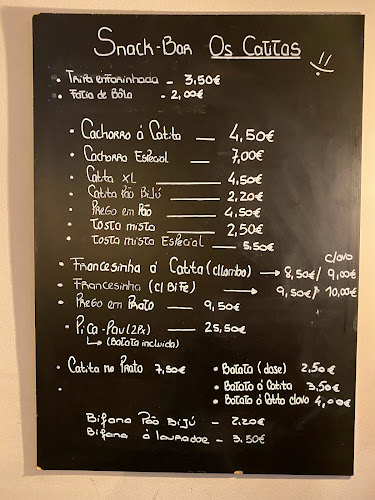 Snack-Bar Os Catitas
• Tripa enfarinhada - 3,50€
• Fatia de Bôla - 2,00€
• Cachorro á Catita — 4,50€
• Cachorro Especial — 7,00€
• Catita XL — 4,50€
• Catita Pão Biju — 2,20€
• Prego em Pão — 4,50€
• Tosta mista — 2,50€
• Tosta mista Especial — 5,50€
c/ovo
• Francesinha á Catita (c/lombo) → 8,50€/ 9,00€
• Francesinha (c/ Bife) → 9,50€/ 10,00€
• Prego em Prato — 9,50€
• Pica-Pau (2Px) — 25,50€
↳ (Batata incluida)
• Catita no Prato 7,50€
• Batata (dose) 2,50€
• Batata á Catita 3,50€
• Batata á Catita c/ovo 4,00€
Bifana Pão Bijú - 2,20€
Bifana á lavrador - 3,50€